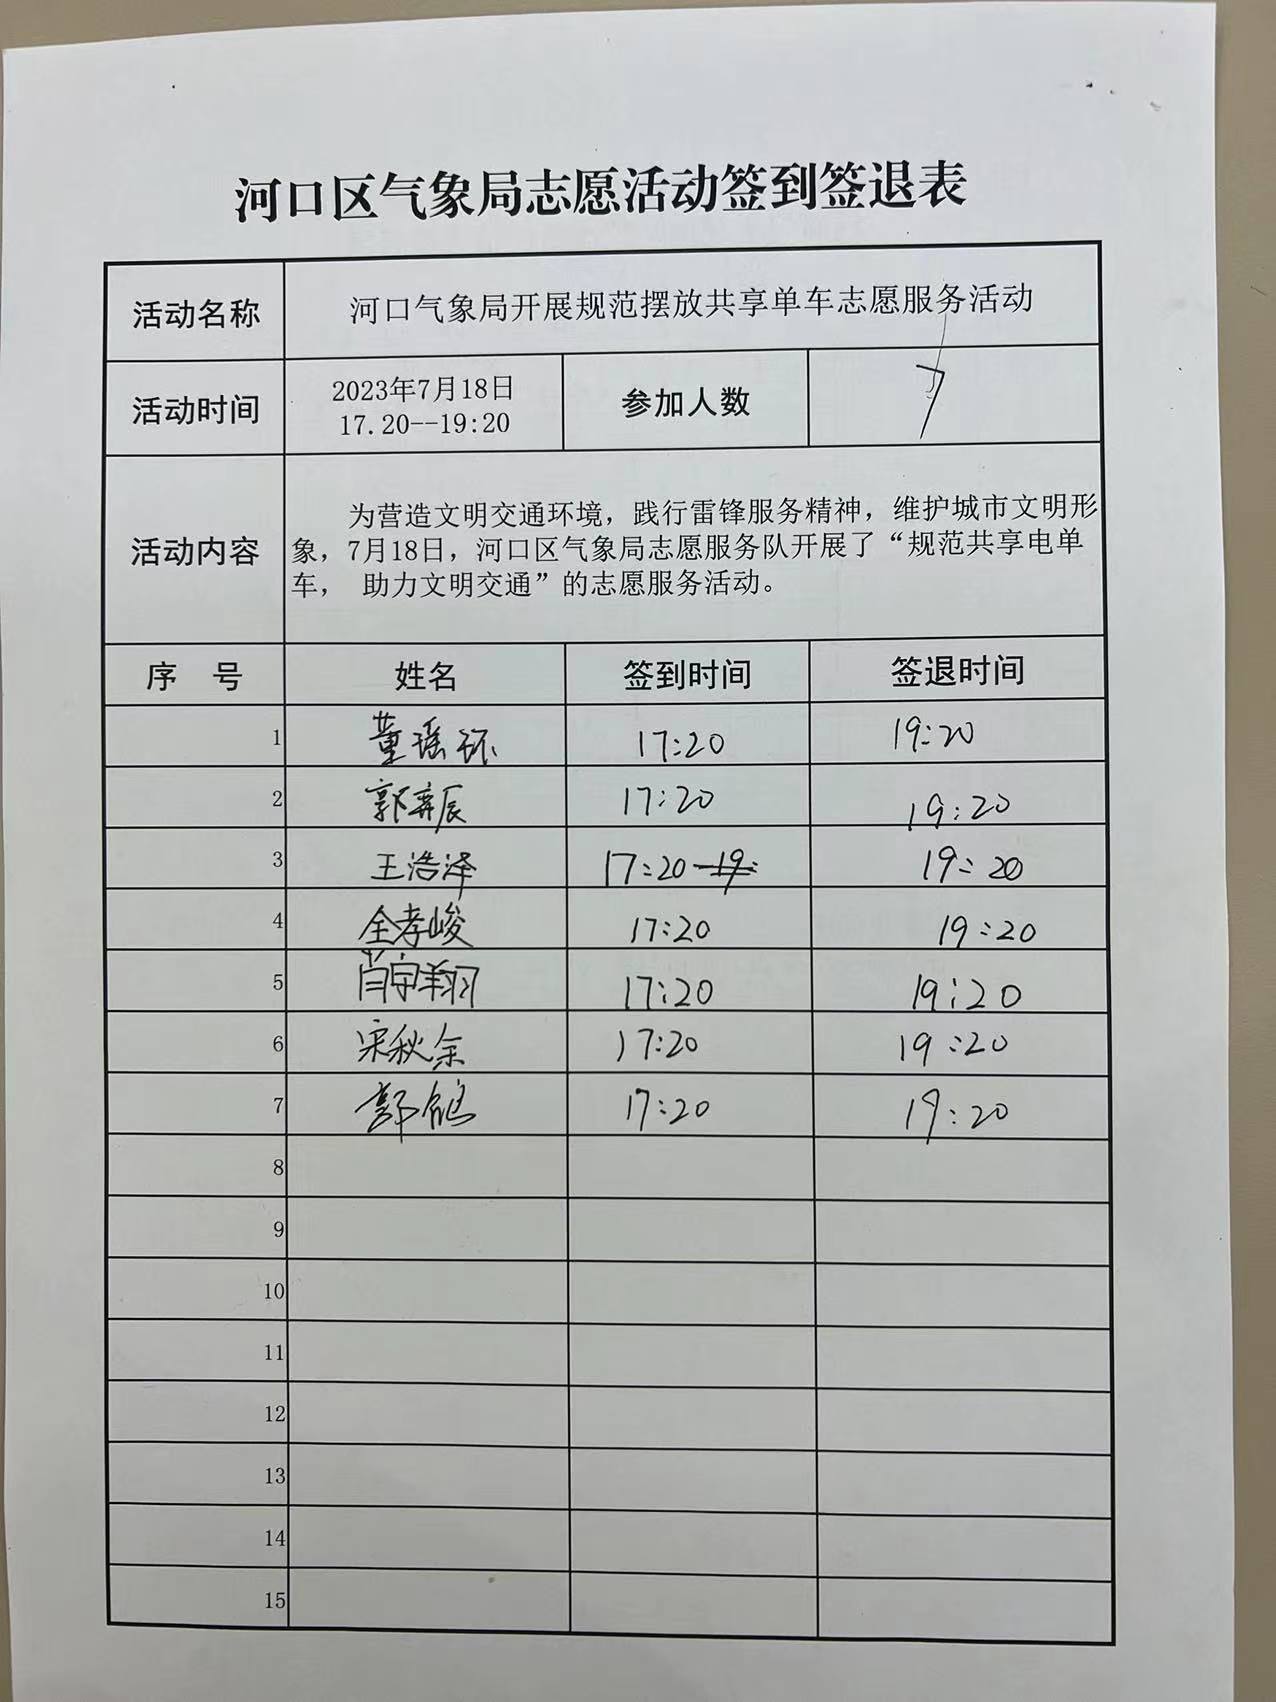 河口区气象局志愿活动签到签退表
活动名称 河口气象局开展规范摆放共享单车志愿服务活动
活动时间 2023年7月18日 17.20--19:20 参加人数 7
活动内容 为营造文明交通环境，践行雷锋服务精神，维护城市文明形
象，7月18日，河口区气象局志愿服务队开展了“规范共享电单
车， 助力文明交通”的志愿服务活动。
序 号 姓名 签到时间 签退时间
1 董瑶环 17:20 19:20
2 郭弈辰 17:20 19:20
3 王浩泽 17:20 19:20
4 全孝峻 17:20 19:20
5 肖宇翔 17:20 19:20
6 宋秋余 17:20 19:20
7 郭 17:20 19:20
8
9
10
11
12
13
14
15